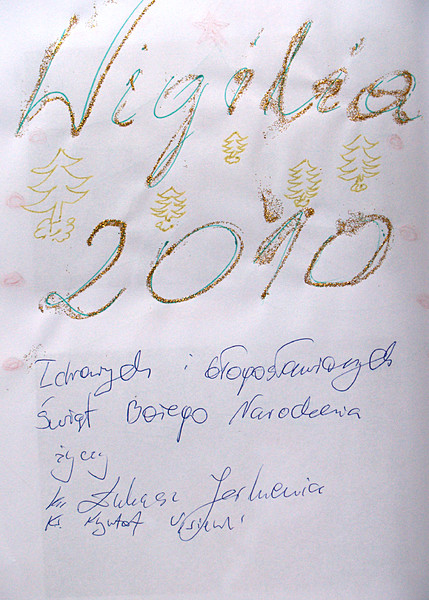 Wigilia
2010
Zdrowych i błogosławionych
Świąt Bożego Narodzenia
życzy
ks. Łukasz
Ks.